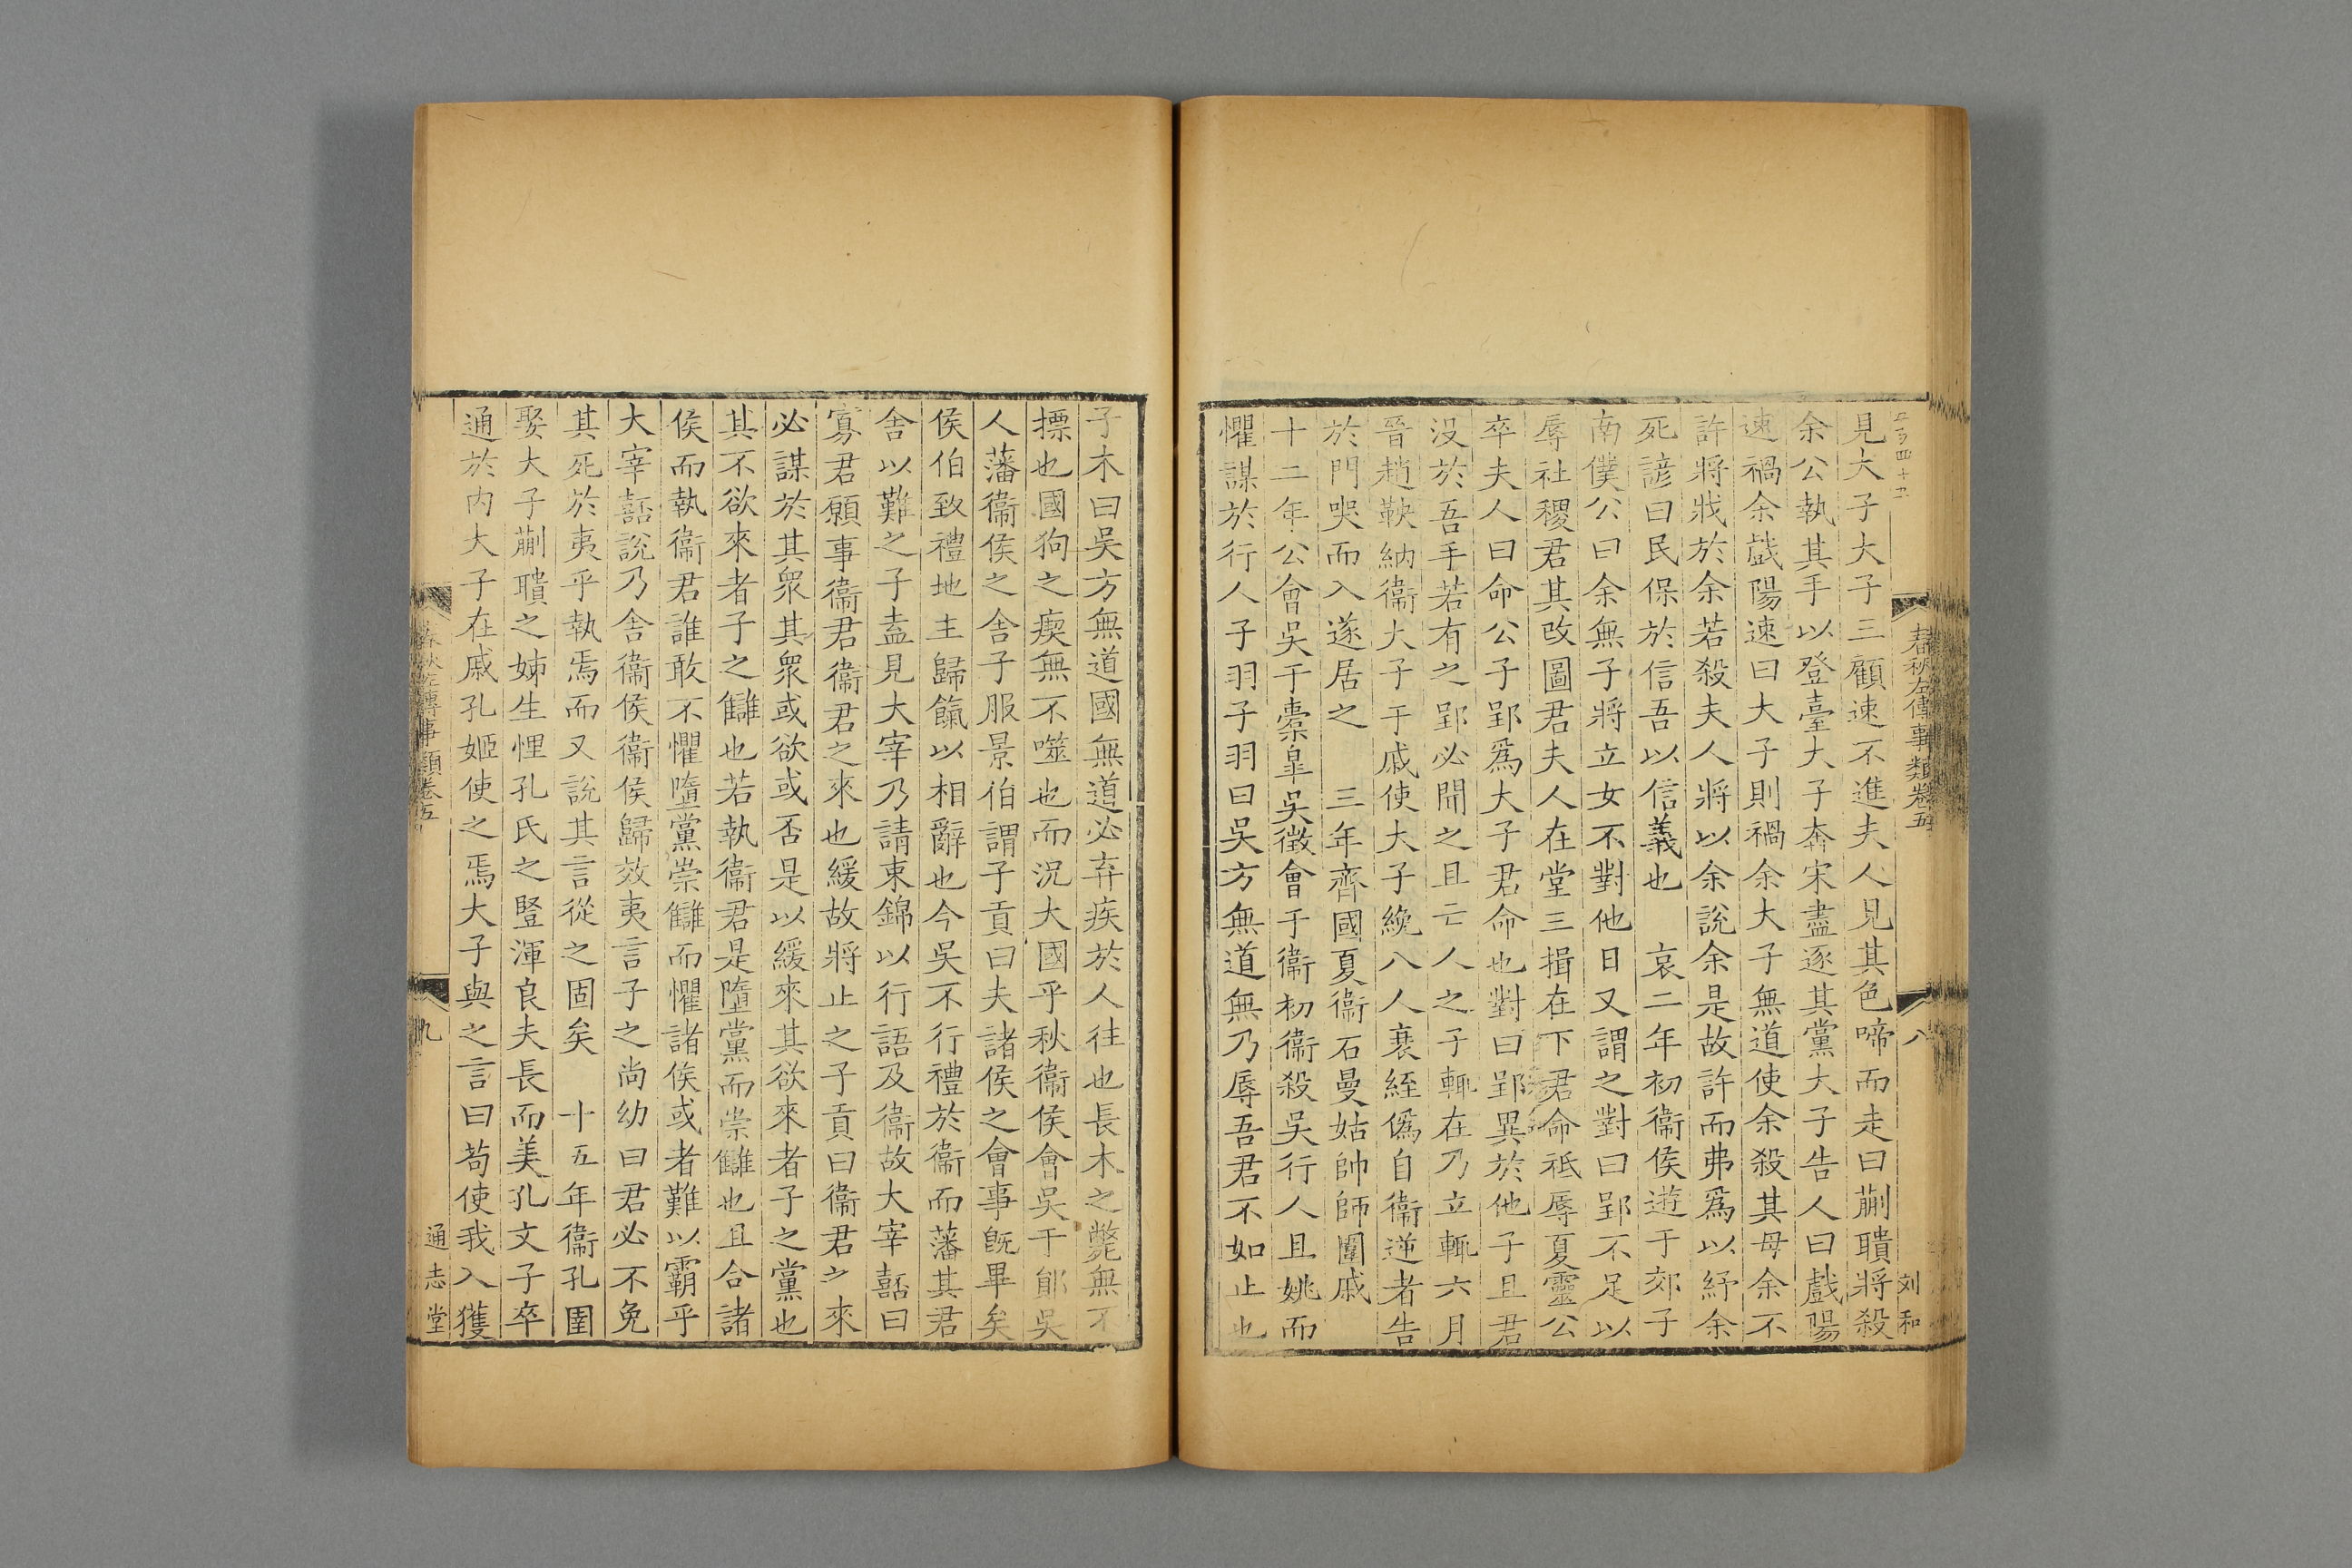 春秋左傳事類卷五
八
刘和
見大子大子三顧速不進夫人見其色啼而走曰蒯聵將殺
余公執其手以登臺大子奔宋盡逐其黨大子告人曰戲陽
速禍余戲陽速曰大子則禍余大子無道使余殺其母余不
許將戕於余若殺夫人將以余說余是故許而弗爲以紓余
死諺曰民保於信吾以信義也　哀二年初衞侯遊于郊子
南僕公曰余無子將立女不對他日又謂之對曰郢不足以
辱社稷君其改圖君夫人在堂三揖在下君命祗辱夏靈公
卒夫人曰命公子郢爲大子君命也對曰郢異於他子且君
没於吾手若有之郢必聞之且亡人之子輒在乃立輒六月
晉趙鞅納衞大子于戚使大子絻八人衰絰僞自衞逆者告
於門哭而入遂居之　三年齊國夏衞石曼姑帥師圍戚
十二年公會吳于橐皐吳徵會于衞初衞殺吳行人且姚而
懼謀於行人子羽子羽曰吳方無道無乃辱吾君不如止也
子木曰吳方無道國無道必弃疾於人往也長木之斃無不
摽也國狗之瘈無不噬也而況大國乎秋衞侯會吳于鄖吳
人藩衞侯之舍子服景伯謂子貢曰夫諸侯之會事既畢矣
侯伯致禮地主歸餼以相辭也今吳不行禮於衞而藩其君
舍以難之子盍見大宰乃請束錦以行語及衞故大宰嚭曰
寡君願事衞君衞君之來也緩故將止之子貢曰衞君之來
必謀於其衆其衆或欲或否是以緩來其欲來者子之黨也
其不欲來者子之讎也若執衞君是墮黨而崇讎也且合諸
侯而執衞君誰敢不懼墮黨崇讎而懼諸侯或者難以霸乎
大宰嚭說乃舍衞侯衞侯歸效夷言子之尚幼曰君必不免
其死於夷乎執焉而又說其言從之固矣　十五年衞孔圉
娶大子蒯聵之姊生悝孔氏之豎渾良夫長而美孔文子卒
通於内大子在戚孔姬使之焉大子與之言曰苟使我入獲
春秋左傳事類卷五
九
通志堂